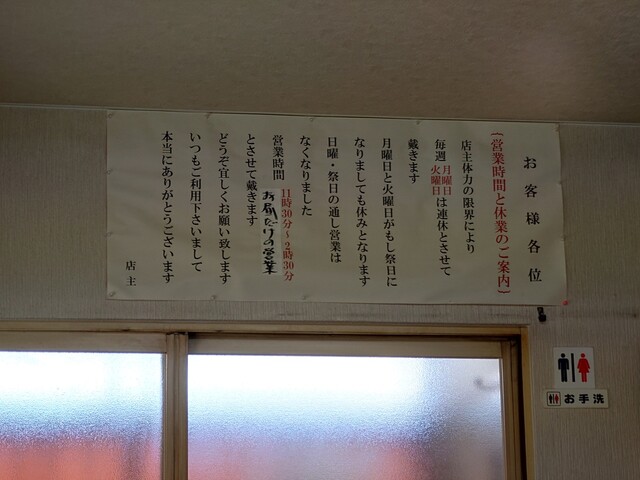 お客様各位
［営業時間と休業のご案内］
店主体力の限界により
毎週 月曜日 火曜日 は連休とさせて
戴きます
月曜日と火曜日がもし祭日に
なりましても休みとなります
日曜・祭日の通し営業は
なくなりました
営業時間 11時30分～2時30分
お昼だけの営業
とさせて戴きます
どうぞ宜しくお願い致します
いつもご利用下さいまして
本当にありがとうございます
店主
お手洗